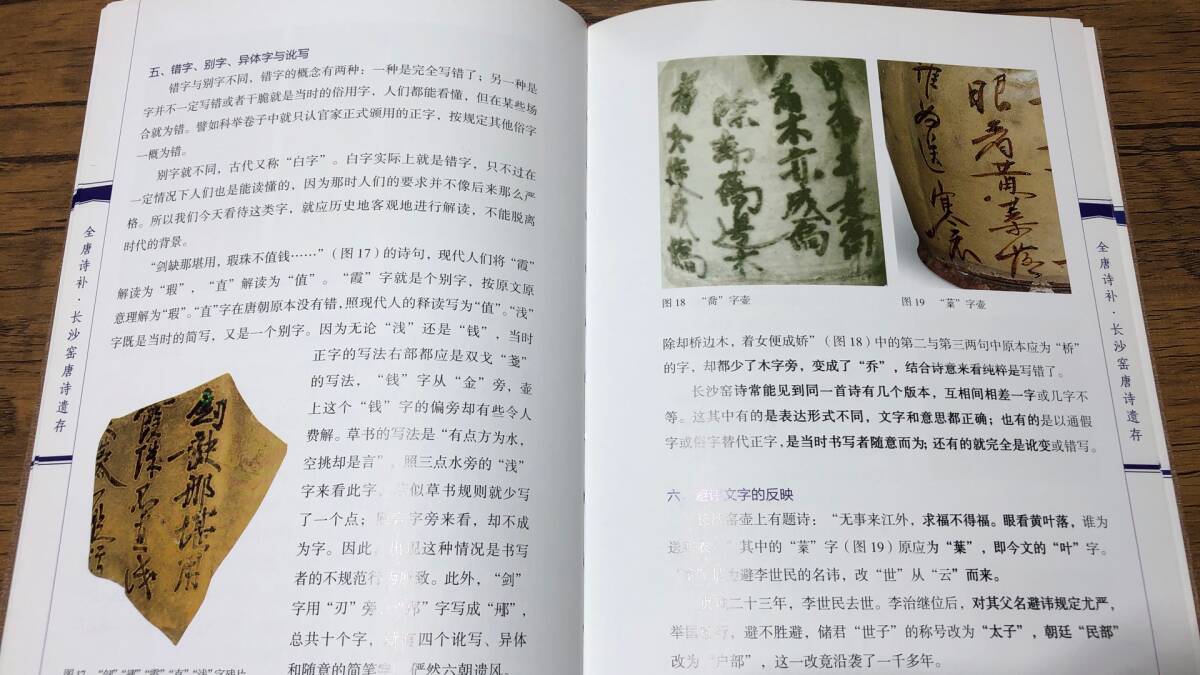 五、错字、别字、异体字与讹写
错字与别字不同,错字的概念有两种:一种是完全写错了;另一种是
字并不一定写错或者干脆就是当时的俗用字,人们都能看懂,但在某些场
合就为错。譬如科举卷子中就只认官家正式颁用的正字,按规定其他俗字
一概为错。
别字就不同,古代又称“白字”。白字实际上就是错字,只不过在
一定情况下人们也是能读懂的,因为那时人们的要求并不像后来那么严
格。所以我们今天看待这类字,就应历史地客观地进行解读,不能脱离
时代的背景。
“剑缺那堪用,瑕珠不值钱……”(图17)的诗句,现代人们将“霞”
解读为“瑕”,“直”解读为“值”。“霞”字就是个别字,按原文原
意理解为“瑕”。“直”字在唐朝原本没有错,照现代人的释读写为“值”。“浅”
字既是当时的简写,又是一个别字。因为无论“浅”还是“钱”,当时
正字的写法右部都应是双戈“戔”
的写法,“钱”字从“金”旁,壶
上这个“钱”字的偏旁却有些令人
费解。草书的写法是“有点方为水,
空挑却是言”,照三点水旁的“浅”
字来看此字,似草书规则就少写
了一个点;字旁来看,却不成
为字。因此,出现这种情况是书写
者的不规范行为所致。此外,“剑”
字用“刃”旁,“那”字写成“𨚗”,
总共十个字,就有四个讹写、异体
和随意的简笔字,俨然六朝遗风。
全唐诗补·长沙窑唐诗遗存
剑缺那堪用
霞珠不直浅
图17 “剑”“那”“霞”“直”“浅”字残片
图18 “喬”字壶
图19 “䒶”字壶
眼看黄 落
谁为送寒衣
除却桥边木,着女便成娇”(图18)中的第二与第三两句中原本应为“桥”
的字,却都少了木字旁,变成了“乔”,结合诗意来看纯粹是写错了。
长沙窑诗常能见到同一首诗有几个版本,互相间相差一字或几字不
等。这其中有的是表达形式不同,文字和意思都正确;也有的是以通假
字或俗字替代正字,是当时书写者随意而为;还有的就完全是讹变或错写。
六、避讳文字的反映
长沙窑壶上有题诗:“无事来江外,求福不得福。眼看黄叶落,谁为
送寒衣。”其中的“ ”字(图19)原应为“葉”,即今文的“叶”字。
为避李世民的名讳,改“世”从“云”而来。
贞观二十三年,李世民去世。李治继位后,对其父名避讳规定尤严,
举国,避不胜避,储君“世子”的称号改为“太子”,朝廷“民部”
改为“户部”,这一改竟沿袭了一千多年。
全唐诗补·长沙窑唐诗遗存